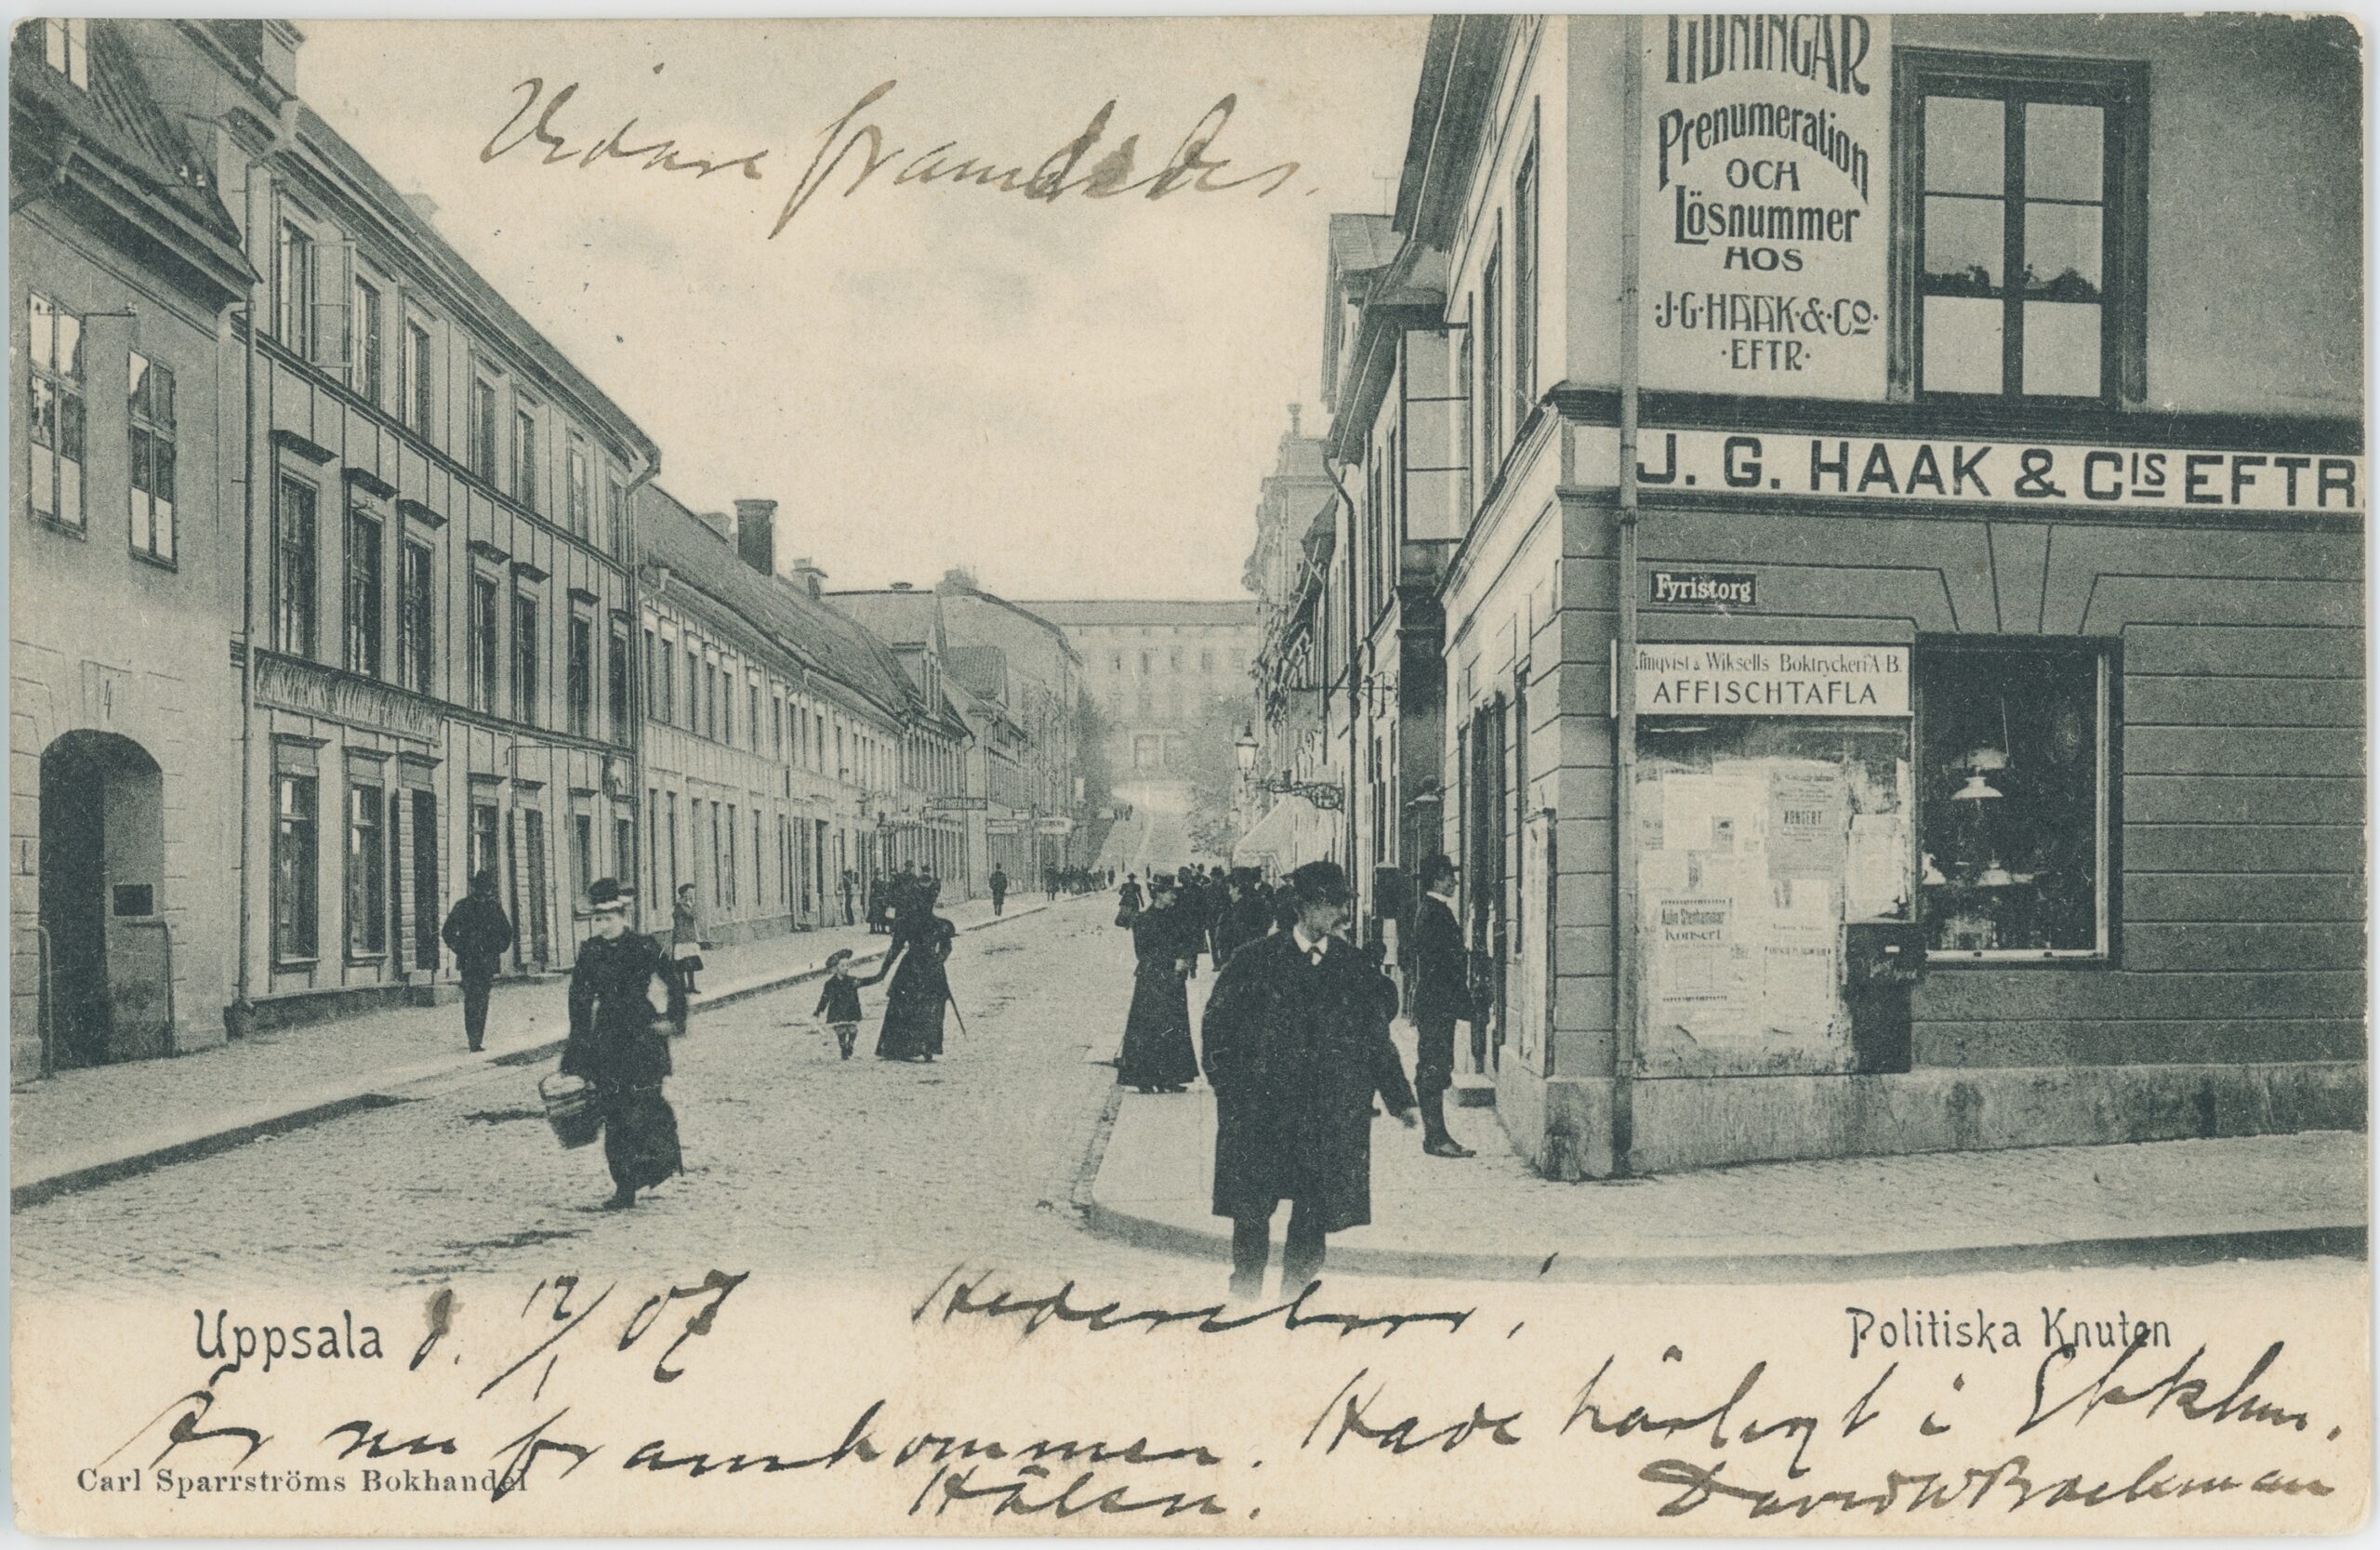 Vidare framdeles.
TIDNINGAR
Prenumeration
OCH
Lösnummer
HOS
·J·G·HAAK·&·Co·
·EFTR·
J. G. HAAK & CIS EFTR.
Fyristorg
& Wiksells Boktryckeri A-B.
AFFISCHTAFLA
KONSERT
Konsert
4
Uppsala d. 12/1 07
Hedersbror!
Politiska Knuten
Är nu framkommen. Hade härligt i Sthklm.
Carl Sparrströms Bokhandel
Hälsn.
David W Backman